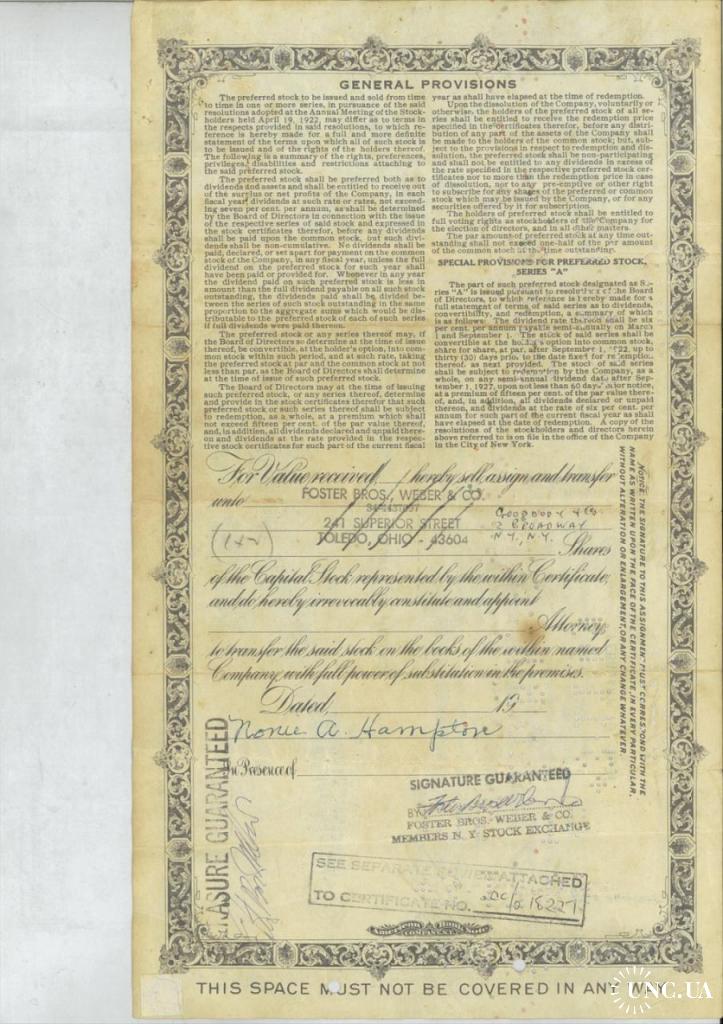 GENERAL PROVISIONS
The preferred stock to be issued and sold from time
to time in one or more series, in pursuance of the said
resolutions adopted at the Annual Meeting of the Stock-
holders held April 19, 1922, may differ as to terms in
the respects provided in said resolutions, to which re-
ference is hereby made for a full and more definite
statement of the terms upon which all of such stock is
to be issued and of the rights of the holders thereof.
The following is a summary of the rights, preferences,
privileges, disabilities and restrictions attaching to
the said preferred stock.
The preferred stock shall be preferred both as to
dividends and assets and shall be entitled to receive out
of the surplus or net profits of the Company, in each
fiscal year, dividends at such rate or rates, not exceed-
ing seven per cent. per annum, as shall be determined
by the Board of Directors in connection with the issue
of the respective series of said stock and expressed in
the stock certificates therefor, before any dividends
shall be paid upon the common stock, but such divi-
dends shall be non-cumulative. No dividends shall be
paid, declared, or set apart for payment on the common
stock of the Company, in any fiscal year, unless the full
dividend on the preferred stock for such year shall
have been paid or provided for. Whenever in any year
the dividend paid on such preferred stock is less in
amount than the full dividend payable on all such stock
outstanding, the dividends paid shall be divided be-
tween the series of such stock outstanding in the same
proportion to the aggregate sums which would be dis-
tributable to the preferred stock of each of such series
if full dividends were paid thereon.
The preferred stock or any series thereof may, if
the Board of Directors so determine at the time of issue
thereof, be convertible, at the holder's option, into com-
mon stock within such period, and at such rate, taking
the preferred stock at par and the common stock at not
less than par, as the Board of Directors shall determine
at the time of issue of such preferred stock.
The Board of Directors may at the time of issuing
such preferred stock, or any series thereof, determine
and provide in the stock certificates therefor that such
preferred stock or such series thereof shall be subject
to redemption, as a whole, at a premium which shall
not exceed fifteen per cent. of the par value thereof,
and, in addition, all dividends declared and unpaid there-
on and dividends at the rate provided in the respec-
tive stock certificates for such part of the current fiscal
year as shall have elapsed at the time of redemption.
Upon the dissolution of the Company, voluntarily or
otherwise, the holders of the preferred stock of all se-
ries shall be entitled to receive the redemption price
specified in the certificates therefor, before any distri-
bution of any part of the assets of the Company shall
be made to the holders of the common stock; but, sub-
ject to the provisions in respect to redemption and dis-
solution, the preferred stock shall be non-participating
and shall not be entitled to any dividends in excess of
the rate specified in the respective preferred stock cer-
tificates nor to more than the redemption price in case
of dissolution, nor to any pre-emptive or other right
to subscribe for any shares of the preferred or common
stock which may be issued by the Company, or for any
securities offered by it for subscription.
The holders of preferred stock shall be entitled to
full voting rights as stockholders of the Company for
the election of directors, and in all other matters.
The par amount of preferred stock at any time out-
standing shall not exceed one-half of the par amount
of the common stock at the time outstanding.
SPECIAL PROVISIONS FOR PREFERRED STOCK,
SERIES "A"
The part of such preferred stock designated as Se-
ries "A" is issued pursuant to resolutions of the Board
of Directors, to which reference is hereby made for a
full statement of terms of said series as to dividends,
convertibility, and redemption, a summary of which
is as follows: The dividend rate thereon shall be six
per cent. per annum payable semi-annually on March
1 and September 1. The stock of said series shall be
convertible at the holder's option into common stock,
share for share, at par, after September 1, 1922, up to
thirty (30) days prior to the date fixed for redemption
thereof, as next provided. The stock of said series
shall be subject to redemption by the Company, as a
whole, on any semi-annual dividend date after Sep-
tember 1, 1927, upon not less than 60 days' prior notice,
at a premium of fifteen per cent. of the par value there-
of, and, in addition, all dividends declared or unpaid
thereon, and dividends at the rate of six per cent. per
annum for such part of the current fiscal year as shall
have elapsed at the date of redemption. A copy of the
resolutions of the stockholders and directors herein
above referred to is on file in the office of the Company
in the City of New York.
For Value received, hereby sell, assign and transfer
unto
FOSTER BROS., WEBER & CO.
241 SUPERIOR STREET
TOLEDO, OHIO - 43604
2 BROADWAY
N.Y., N.Y.
Shares
of the Capital Stock represented by the within Certificate,
and do hereby irrevocably constitute and appoint
Attorney
to transfer the said stock on the books of the within named
Company, with full power of substitution in the premises.
Dated 19
A. Hampton
In Presence of
SIGNATURE GUARANTEED
BY
FOSTER BROS. WEBER & CO.
MEMBERS N. Y. STOCK EXCHANGE
ERASURE GUARANTEED
NOTICE: THE SIGNATURE TO THIS ASSIGNMENT MUST CORRESPOND WITH THE
NAME AS WRITTEN UPON THE FACE OF THE CERTIFICATE, IN EVERY PARTICULAR,
WITHOUT ALTERATION OR ENLARGEMENT, OR ANY CHANGE WHATEVER.
SEE SEPARATE ATTACHED
TO CERTIFICATE NO. 18227
American Bank Note
COMPANY
THIS SPACE MUST NOT BE COVERED IN ANY WAY
UNC.UA